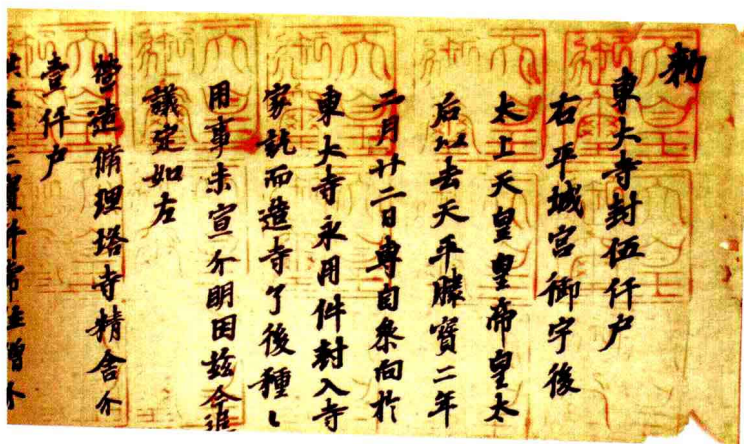 勅
東大寺封伍仟戸
右平城宮御宇後
太上天皇皇帝皇太
后以去天平勝寶二年
二月廿二日專自參向於
東大寺永用件封入寺
家訖而造寺了後種〻
用事未宣分明因茲今追
議定如左
營造脩理塔寺精舍分
壹仟戸
三寶并常住僧分